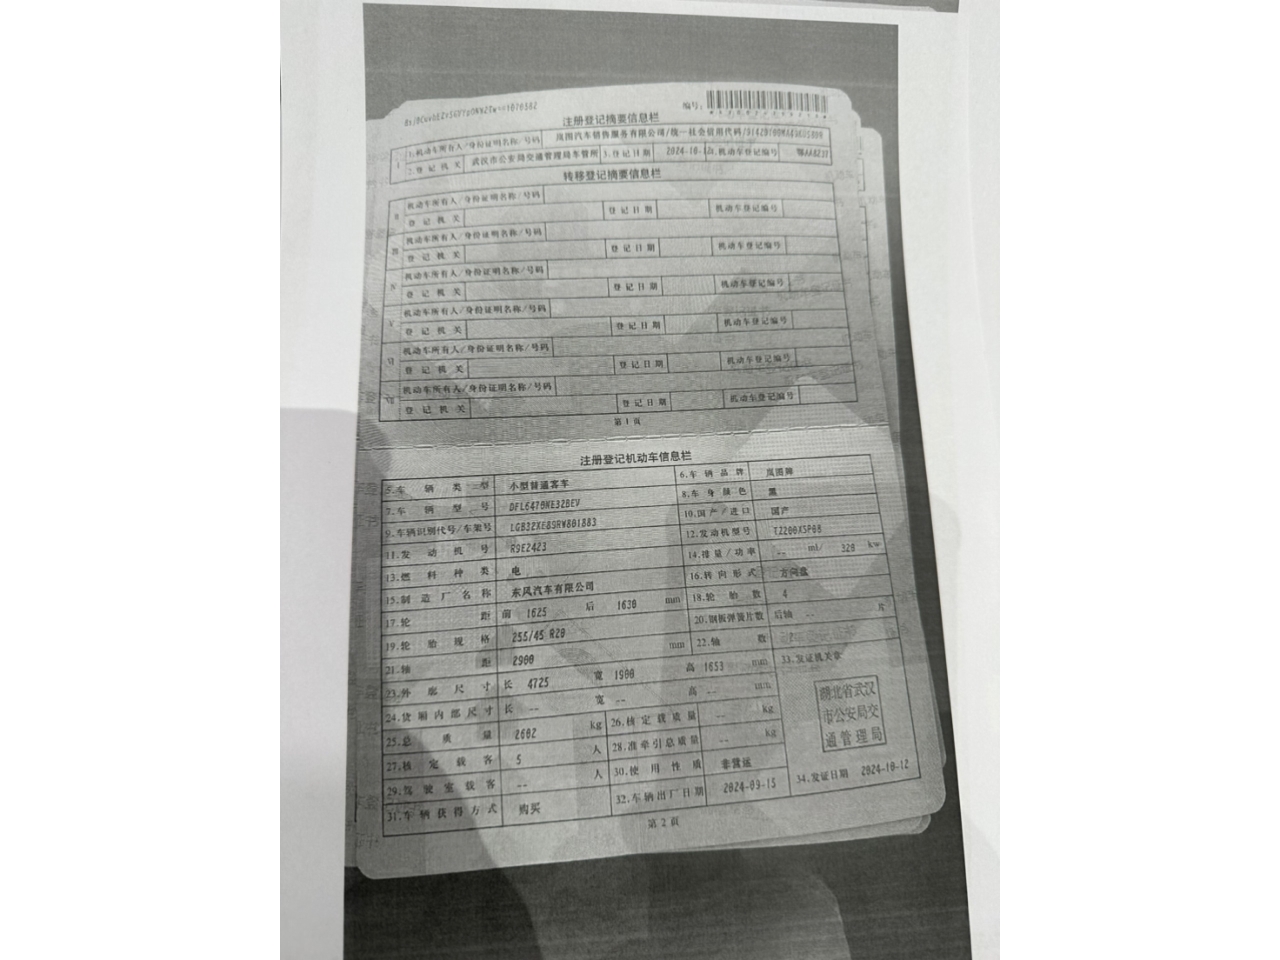 编号：
注册登记摘要信息栏
1 1.机动车所有人/身份证明名称/号码 岚图汽车销售服务有限公司/统一社会信用代码/
2.登记机关 武汉市公安局交通管理局车管所 3.登记日期 2024-10- 4.机动车登记编号
转移登记摘要信息栏
II 机动车所有人/身份证明名称/号码
登记机关 登记日期 机动车登记编号
III 机动车所有人/身份证明名称/号码
登记机关 登记日期 机动车登记编号
IV 机动车所有人/身份证明名称/号码
登记机关 登记日期 机动车登记编号
V 机动车所有人/身份证明名称/号码
登记机关 登记日期 机动车登记编号
VI 机动车所有人/身份证明名称/号码
登记机关 登记日期 机动车登记编号
VII 机动车所有人/身份证明名称/号码
登记机关 登记日期 机动车登记编号
第1页
注册登记机动车信息栏
5.车辆类型 小型普通客车 6.车辆品牌 岚图牌
7.车辆型号 DFL6470NE32BEV 8.车身颜色 黑
9.车辆识别代号/车架号 LGB32XE89RW801883 10.国产/进口 国产
11.发动机号 R9E2423 12.发动机型号 TZ200XSP08
13.燃料种类 电 14.排量/功率 -- ml/ 320 kw
15.制造厂名称 东风汽车有限公司 16.转向形式 方向盘
17.轮距 前 1625 后 1630 mm 18.轮胎数 4
19.轮胎规格 255/45 R20 20.钢板弹簧片数 后轴 -- 片
21.轴距 2900 mm 22.轴数 2
23.外廓尺寸 长 4725 宽 1900 高 1653 mm 33.发证机关章
24.货厢内部尺寸 长 -- 宽 -- 高 -- mm
25.总质量 2602 kg 26.核定载质量 -- kg
27.核定载客 5 人 28.准牵引总质量 -- kg
29.驾驶室载客 -- 人 30.使用性质 非营运
31.车辆获得方式 购买 32.车辆出厂日期 2024-09-15 34.发证日期 2024-10-12
湖北省武汉
市公安局交
通管理局
第2页